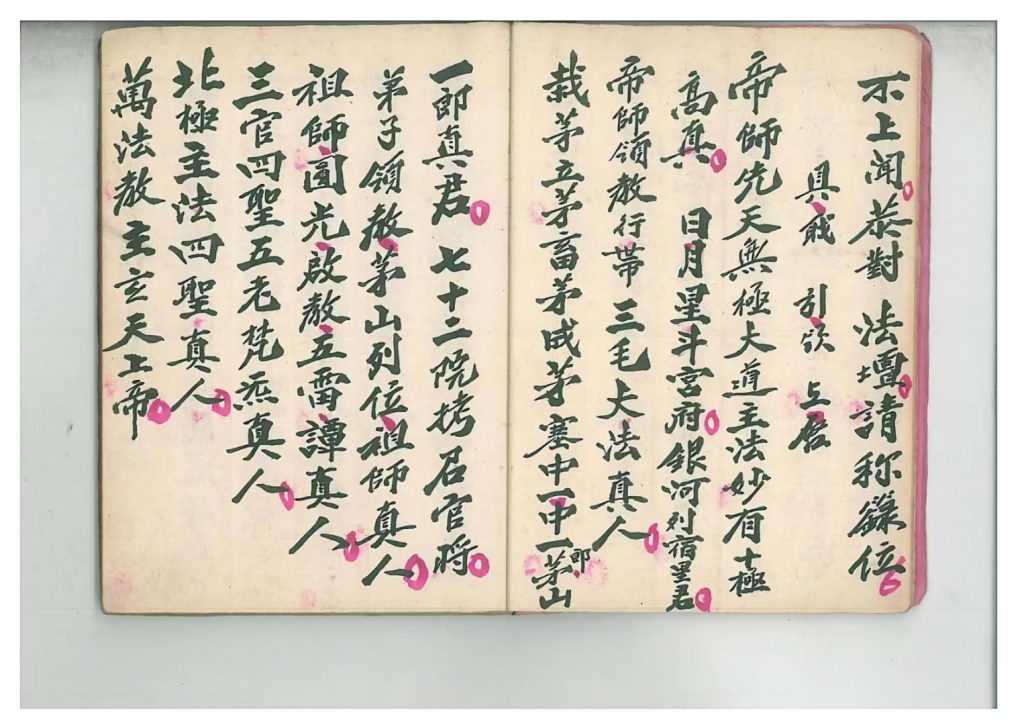 不上聞恭對 法壇請称籙位
具戝 引欤 上启
帝師先天無極大道主法妙有十極
高真 日月星斗宮府銀河列宿星君
帝師領教行帶 三毛大法真人
栽茅立茅畜茅成茅 塞中一中一郎茅山
一郎真君 七十二院拷召官将
弟子領教茅山列位祖師真人
祖師圓光啟教五雷譚真人
三官四聖五老梵炁真人
北極主法四聖真人
萬法教主玄天上帝